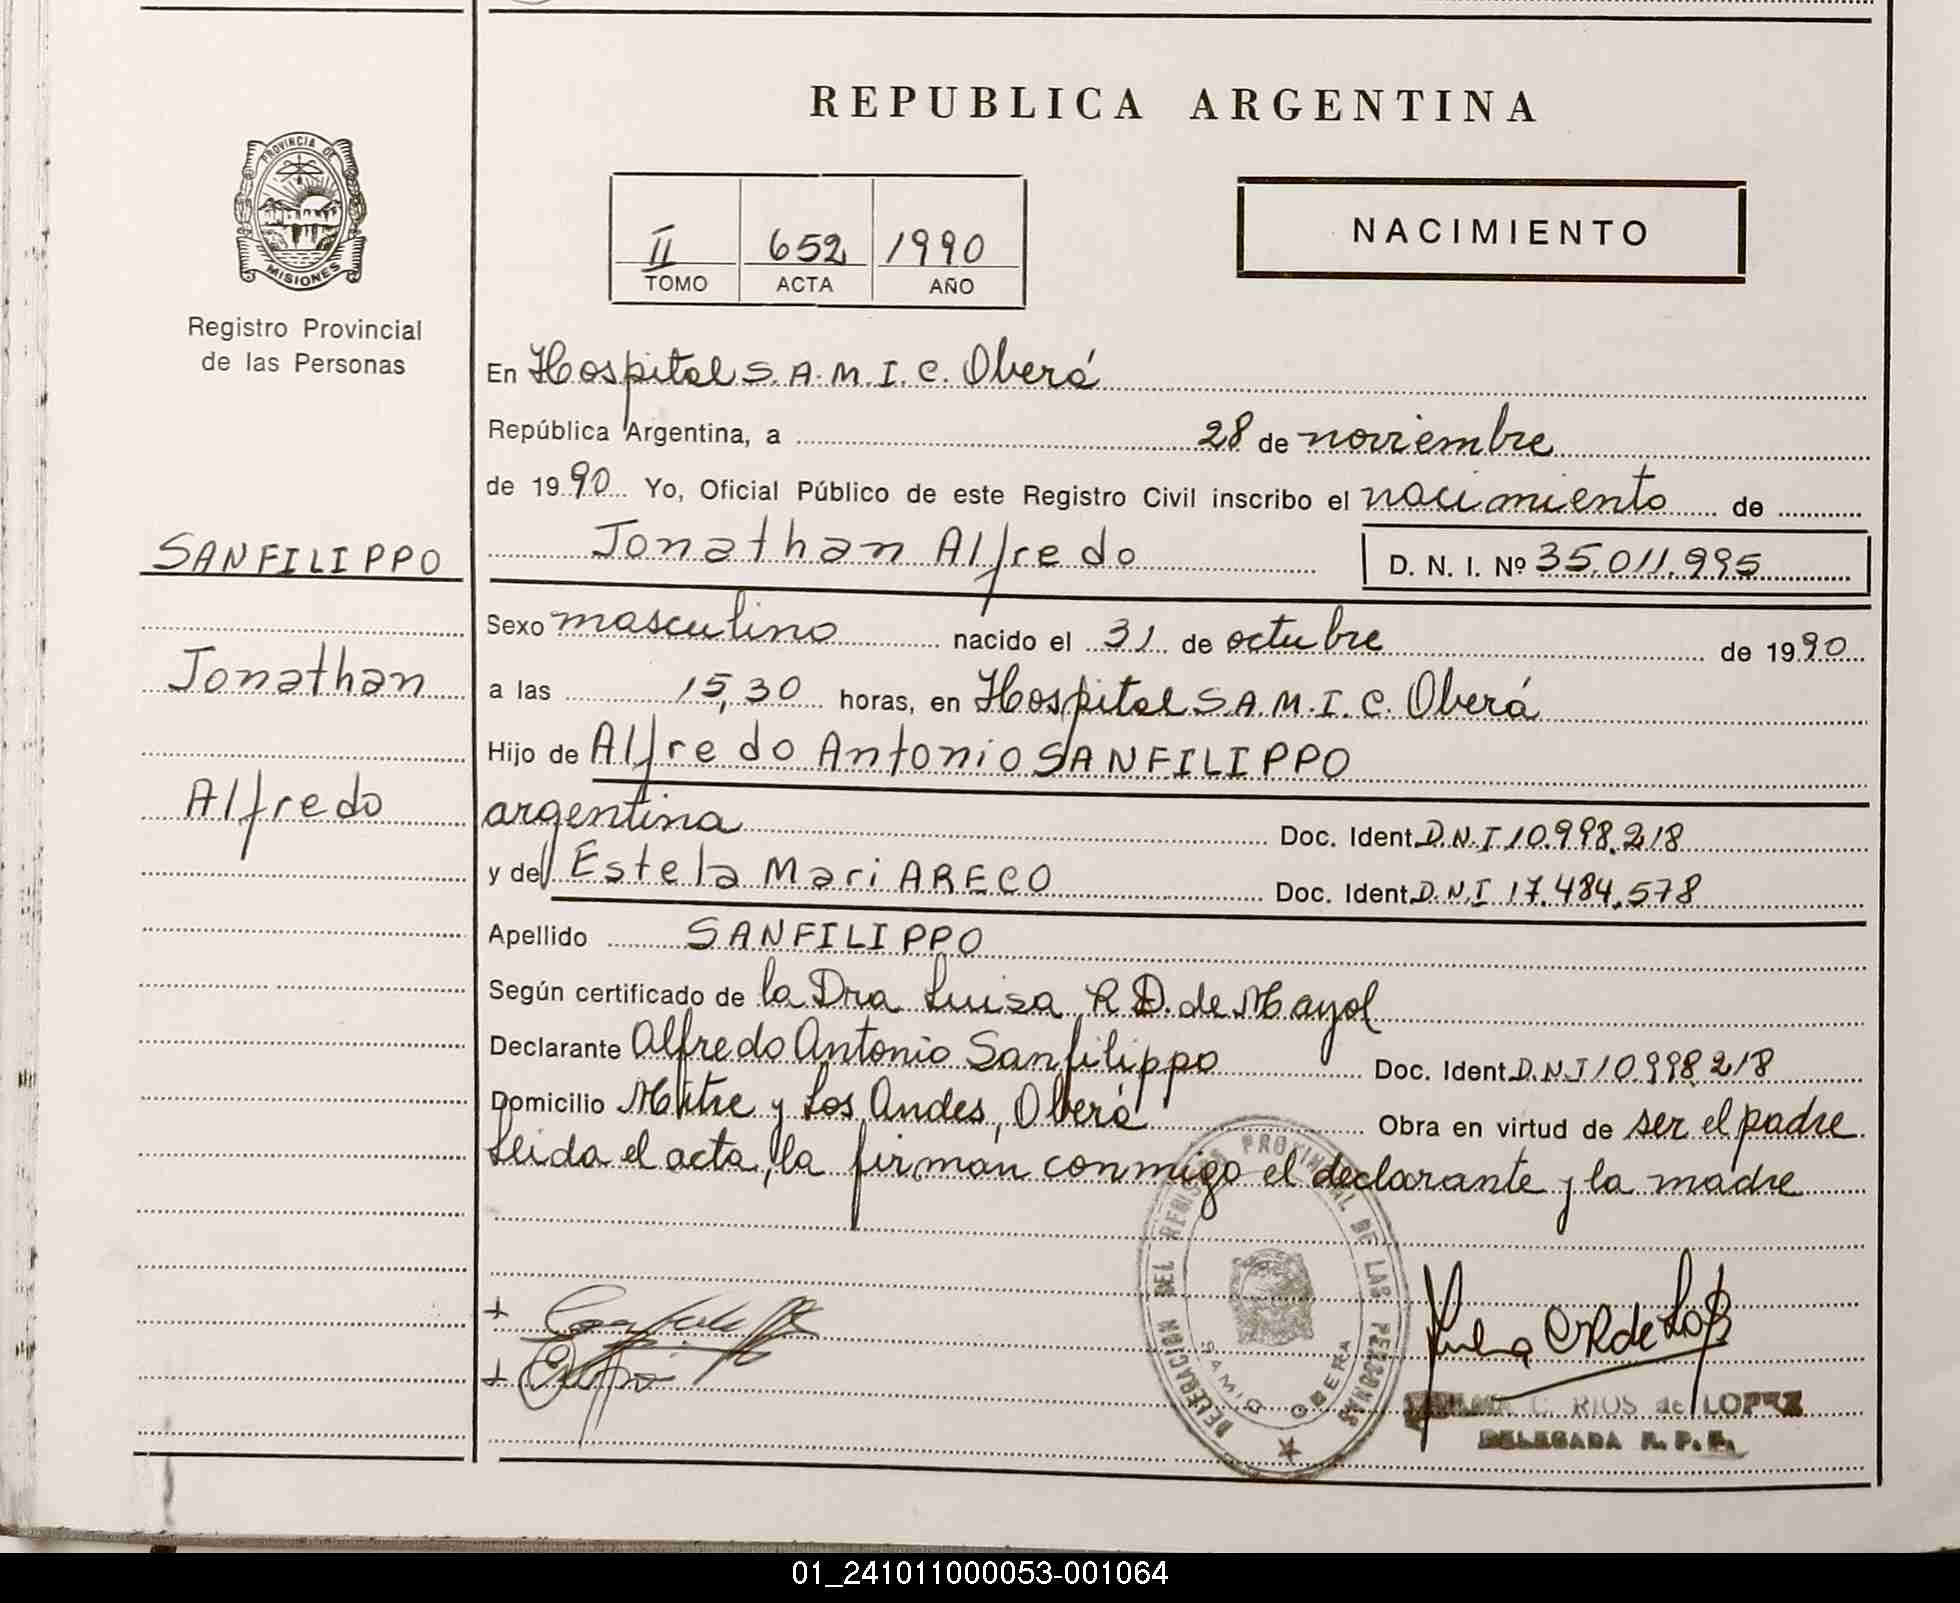 REPUBLICA ARGENTINA
PROVINCIA DE
MISIONES
Registro Provincial
de las Personas
II 652 1990
TOMO ACTA AÑO
NACIMIENTO
En Hospital S.A.M.I.C. Oberá
República Argentina, a 28 de noviembre
de 1990 Yo, Oficial Público de este Registro Civil inscribo el nacimiento de
SANFILIPPO
Jonathan Alfredo D. N. I. Nº 35.011.995
Sexo masculino nacido el 31 de octubre de 1990
Jonathan
a las 15,30 horas, en Hospital S.A.M.I.C. Oberá
Hijo de Alfredo Antonio SANFILIPPO
Alfredo
argentina Doc. Ident. D.N.I 10.998.218
y de Estela Mari ARECO Doc. Ident. D.N.I 17.484.578
Apellido SANFILIPPO
Según certificado de la Dra Luisa R D. de Mayol
Declarante Alfredo Antonio Sanfilippo Doc. Ident. D.N.I 10.998.218
Domicilio Mitre y Los Andes, Oberá Obra en virtud de ser el padre
Leida el acta, la firman conmigo el declarante y la madre
DELEGACION DEL REGISTRO PROVINCIAL DE LAS PERSONAS
SAMIC OBERA
C. RIOS de LOPEZ
DELEGADA R. P. P.
01_241011000053-001064